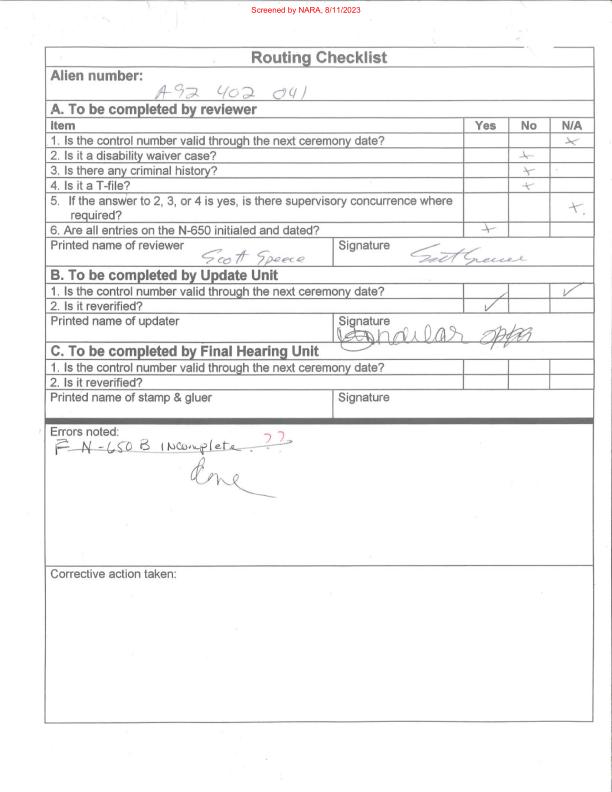 Screened by NARA, 8/11/2023
Routing Checklist
Alien number:
A92 402 041
A. To be completed by reviewer
Item Yes No N/A
1. Is the control number valid through the next ceremony date? ×
2. Is it a disability waiver case? ×
3. Is there any criminal history? ×
4. Is it a T-file? ×
5. If the answer to 2, 3, or 4 is yes, is there supervisory concurrence where
required? ×
6. Are all entries on the N-650 initialed and dated? ×
Printed name of reviewer Signature
Scott
B. To be completed by Update Unit
1. Is the control number valid through the next ceremony date? ✓
2. Is it reverified? ✓
Printed name of updater Signature
C. To be completed by Final Hearing Unit
1. Is the control number valid through the next ceremony date?
2. Is it reverified?
Printed name of stamp & gluer Signature
Errors noted:
F N-650 B INcomplete. ??
done
Corrective action taken: